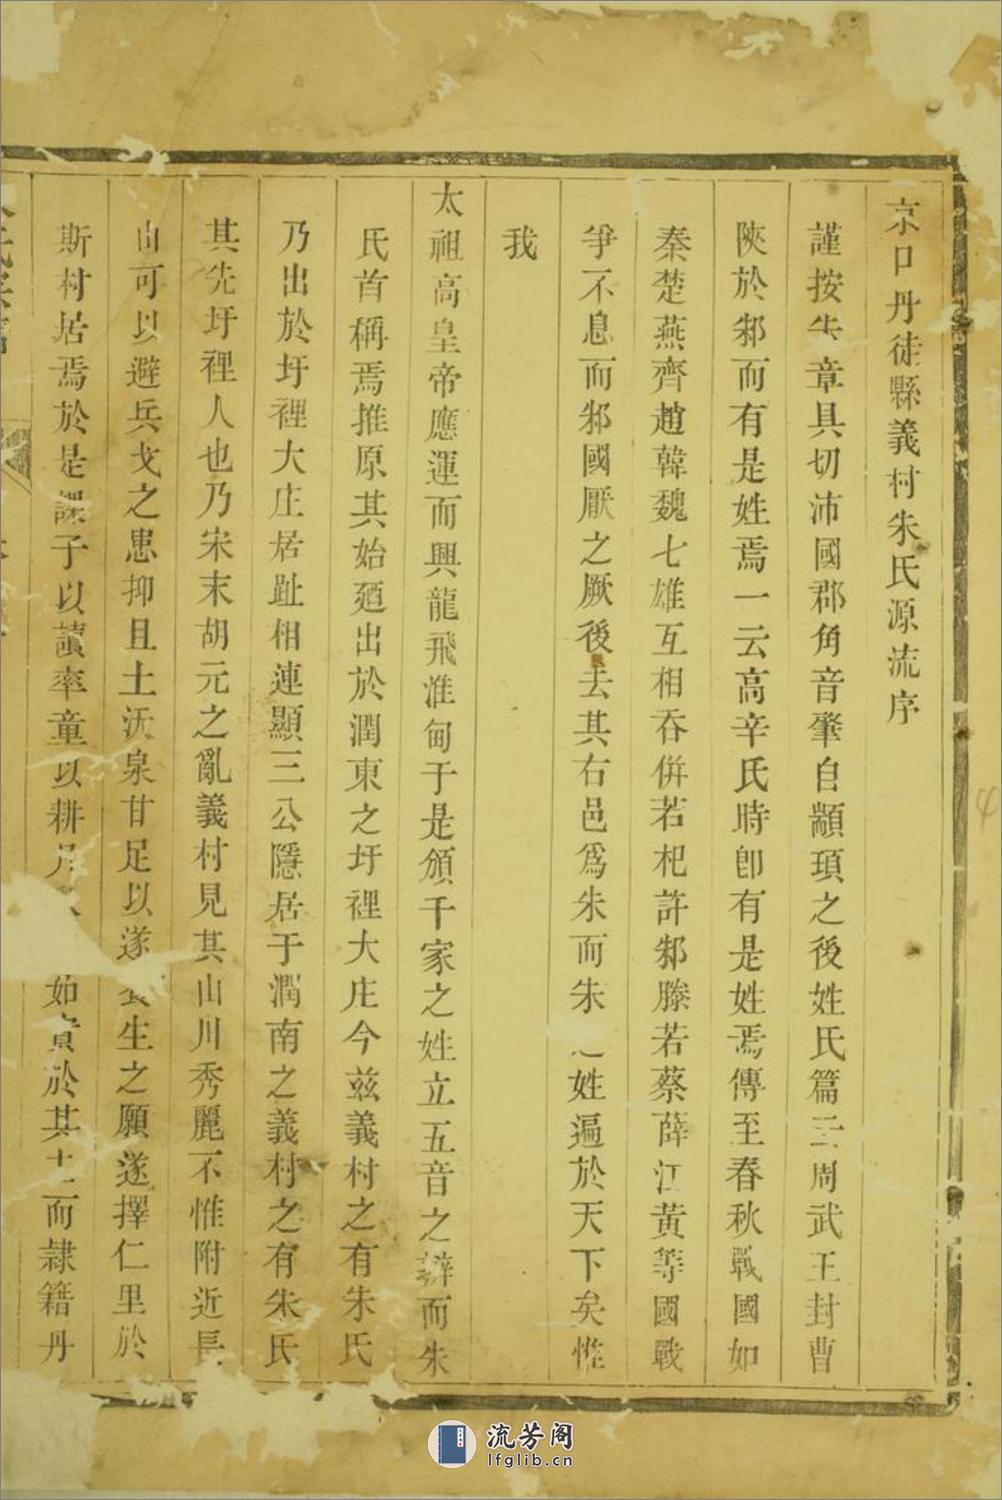 京口丹徒縣義村朱氏源流序
謹按朱章具切沛國郡角音肇自顓頊之後姓氏篇云周武王封曹
陝於邾而有是姓焉一云高辛氏時卽有是姓焉傳至春秋戰國如
秦楚燕齊趙韓魏七雄互相吞併若杞許邾滕若蔡薛江黃等國戰
爭不息而邾國厭之厥後去其右邑爲朱而朱之姓遍於天下矣惟
我
太祖高皇帝應運而興龍飛淮甸于是頒千家之姓立五音之辯而朱
氏首稱焉推原其始廼出於潤東之圩裡大庄今茲義村之有朱氏
乃出於圩裡大庄居趾相連顯三公隱居于潤南之義村之有朱氏
其先圩裡人也乃宋末胡元之亂義村見其山川秀麗不惟附近長
山可以避兵戈之患抑且土沃泉甘足以遂養生之願遂擇仁里於
斯村居焉於是課子以讀率童以耕如賓於其士而隷籍丹
流芳阁
lfglib.cn